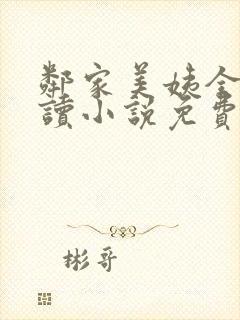 鄰家美姨全
讀小說免費
彬哥